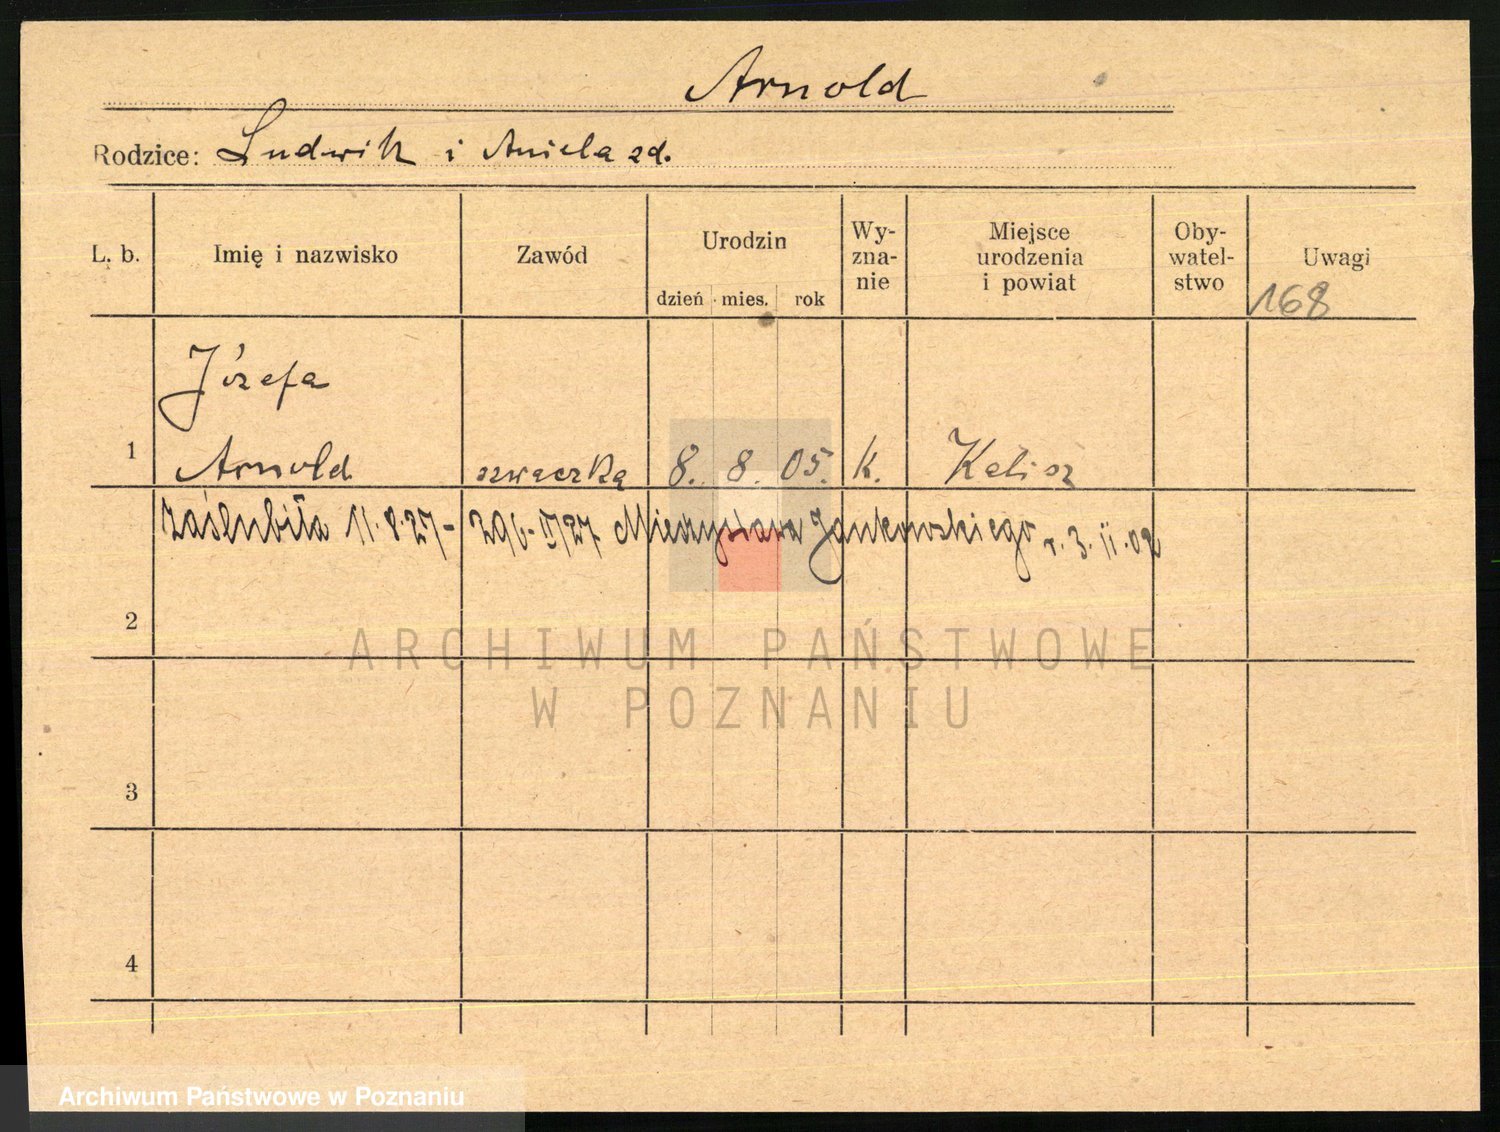 Arnold
Rodzice: Ludwik i Aniela zd.
L. b. Imię i nazwisko Zawód Urodzin dzień mies. rok Wy-zna-nie Miejsce urodzenia i powiat Oby-watel-stwo Uwagi
168
Józefa
1 Arnold szwaczka 8. 8. 05. k. Kalisz
zaślubiła 11.8.27- 296-IV/27 Mieczysława Jankowskiego r. 3.II.02
2
ARCHIWUM PAŃSTWOWE
W POZNANIU
3
4
Archiwum Państwowe w Poznaniu